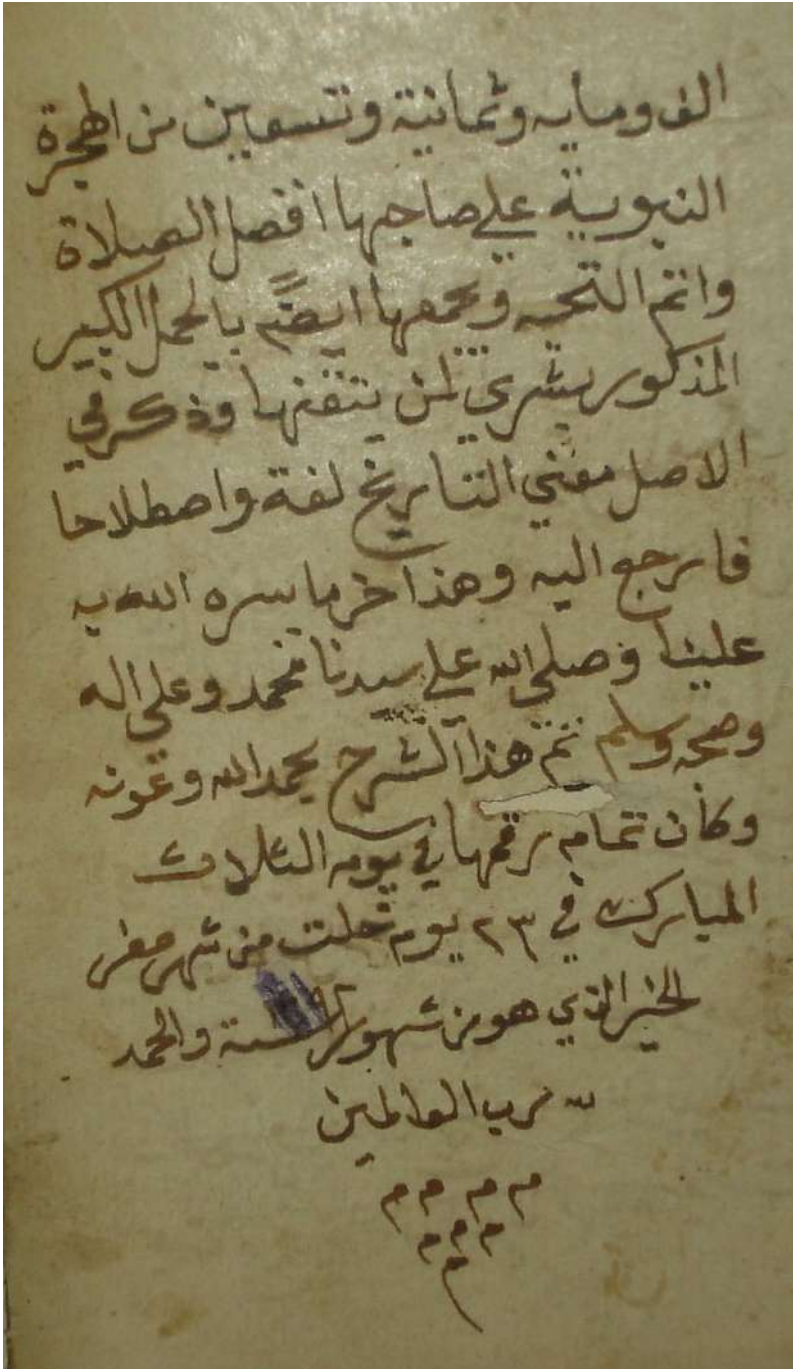 الف ومايه وثمانية وتسعين من الهجرة
النبوية على صاحبها افضل الصلاة
واتم التحيه ويجمعها ايضا بالجمل الكبير
المذكور بشري لمن يتقنها وذكر في
الاصل معني التاريخ لغة واصطلاحا
فارجع اليه وهذا اخر ما يسره الله به
علينا وصلى الله على سيدنا محمد وعلى اله
وصحبه وسلم تم هذا الشرح بحمد الله وعونه
وكان تمام رقمها في يوم الثلاث
المبارك في ٢٣ يوم خلت من شهر صفر
الخير الذي هو من شهور السنة والحمد
لله رب العالمين
م م م م
م م م
م